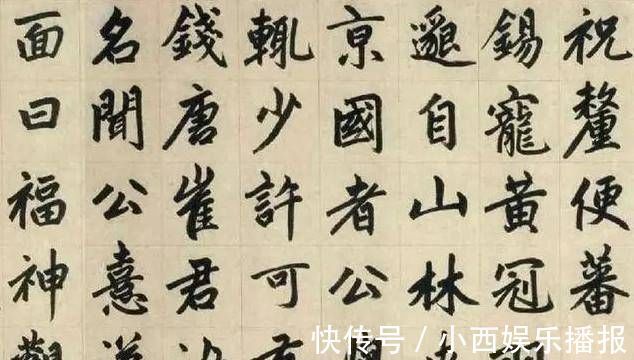 祝釐便蕃
錫寵黃冠
自山林
亰國者公
輒少許可
錢唐崔君
名聞公憙
面曰福神觀
快传号 / 小西娱乐播报